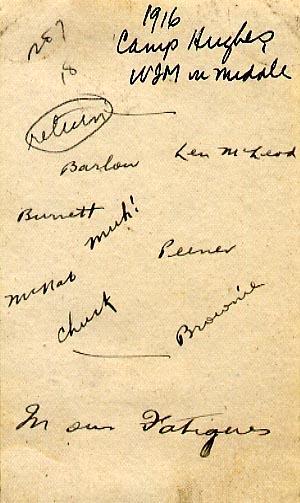 1916
Camp Hughes
WJM in middle
207
18
return
Barlow
Len McLeod
Burnett
Muh!
Peener
McNab
Chuck
Brownie
In our Fatigues